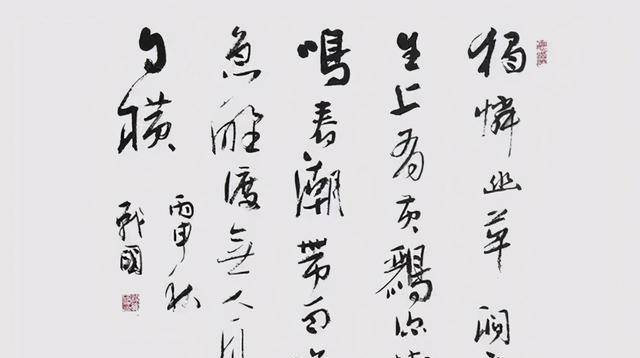 獨憐幽草澗
生上有黃鸝深
鳴春潮帶雨
急野渡無人舟
自橫
丙申秋
戰國